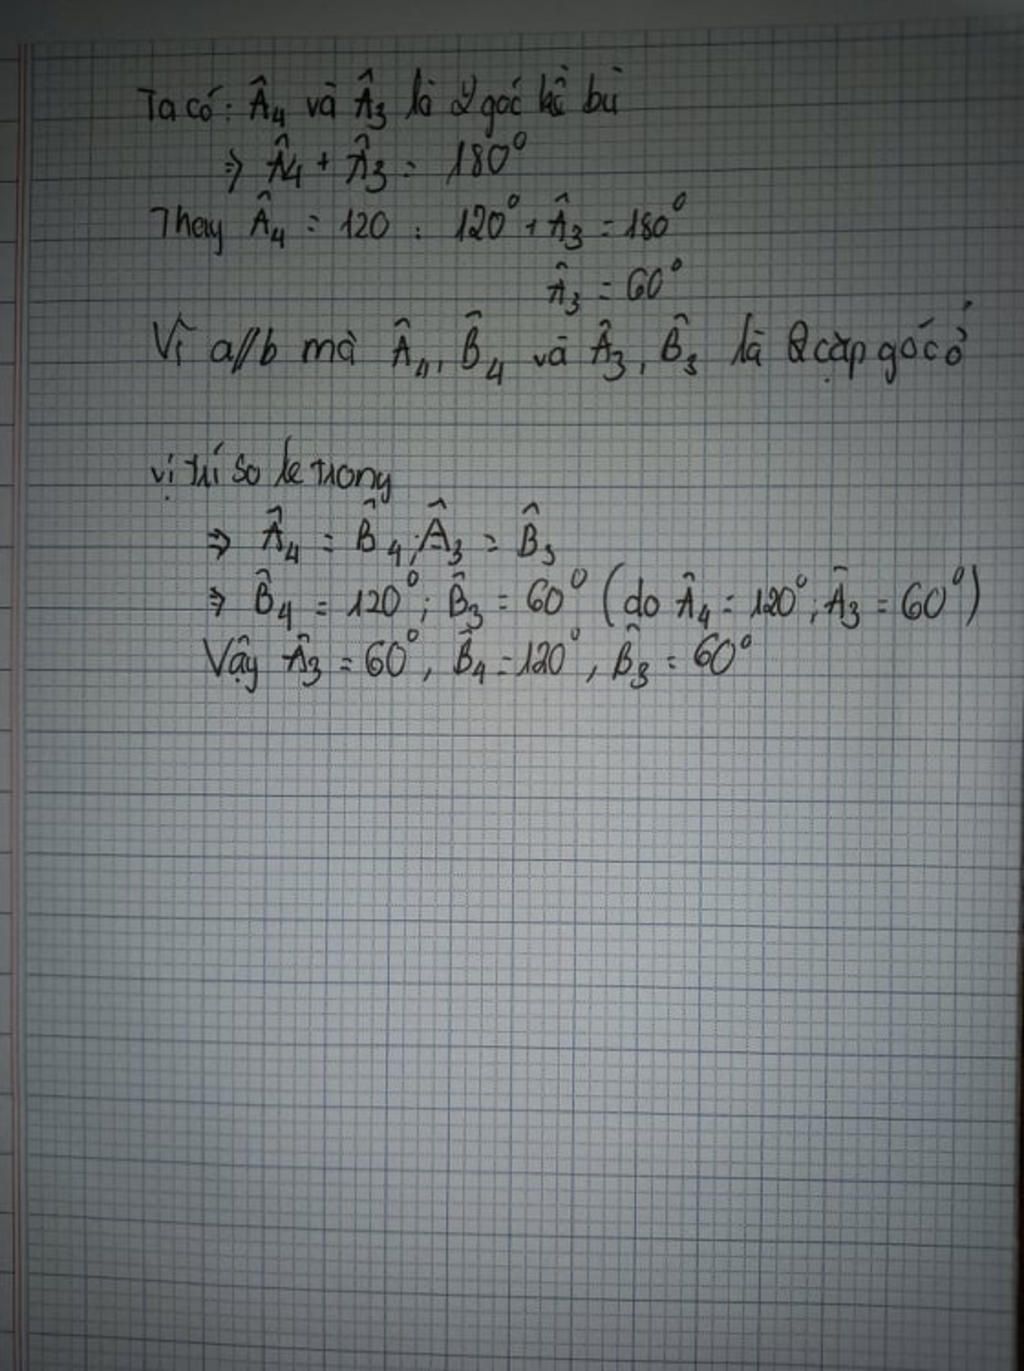 Ta có: Â₄ và Â₃ là 2 góc kề bù
=> Â₄ + Â₃ = 180°
Thay Â₄ = 120 : 120° + Â₃ = 180°
Â₃ = 60°
Vì a//b mà Â₄, B̂₄ và Â₃, B̂₃ là 2 cặp góc ở
vị trí so le trong
=> Â₄ = B̂₄; Â₃ = B̂₃
=> B̂₄ = 120°; B̂₃ = 60° (do Â₄ = 120°; Â₃ = 60°)
Vậy Â₃ = 60°, B̂₄ = 120°, B̂₃ = 60°